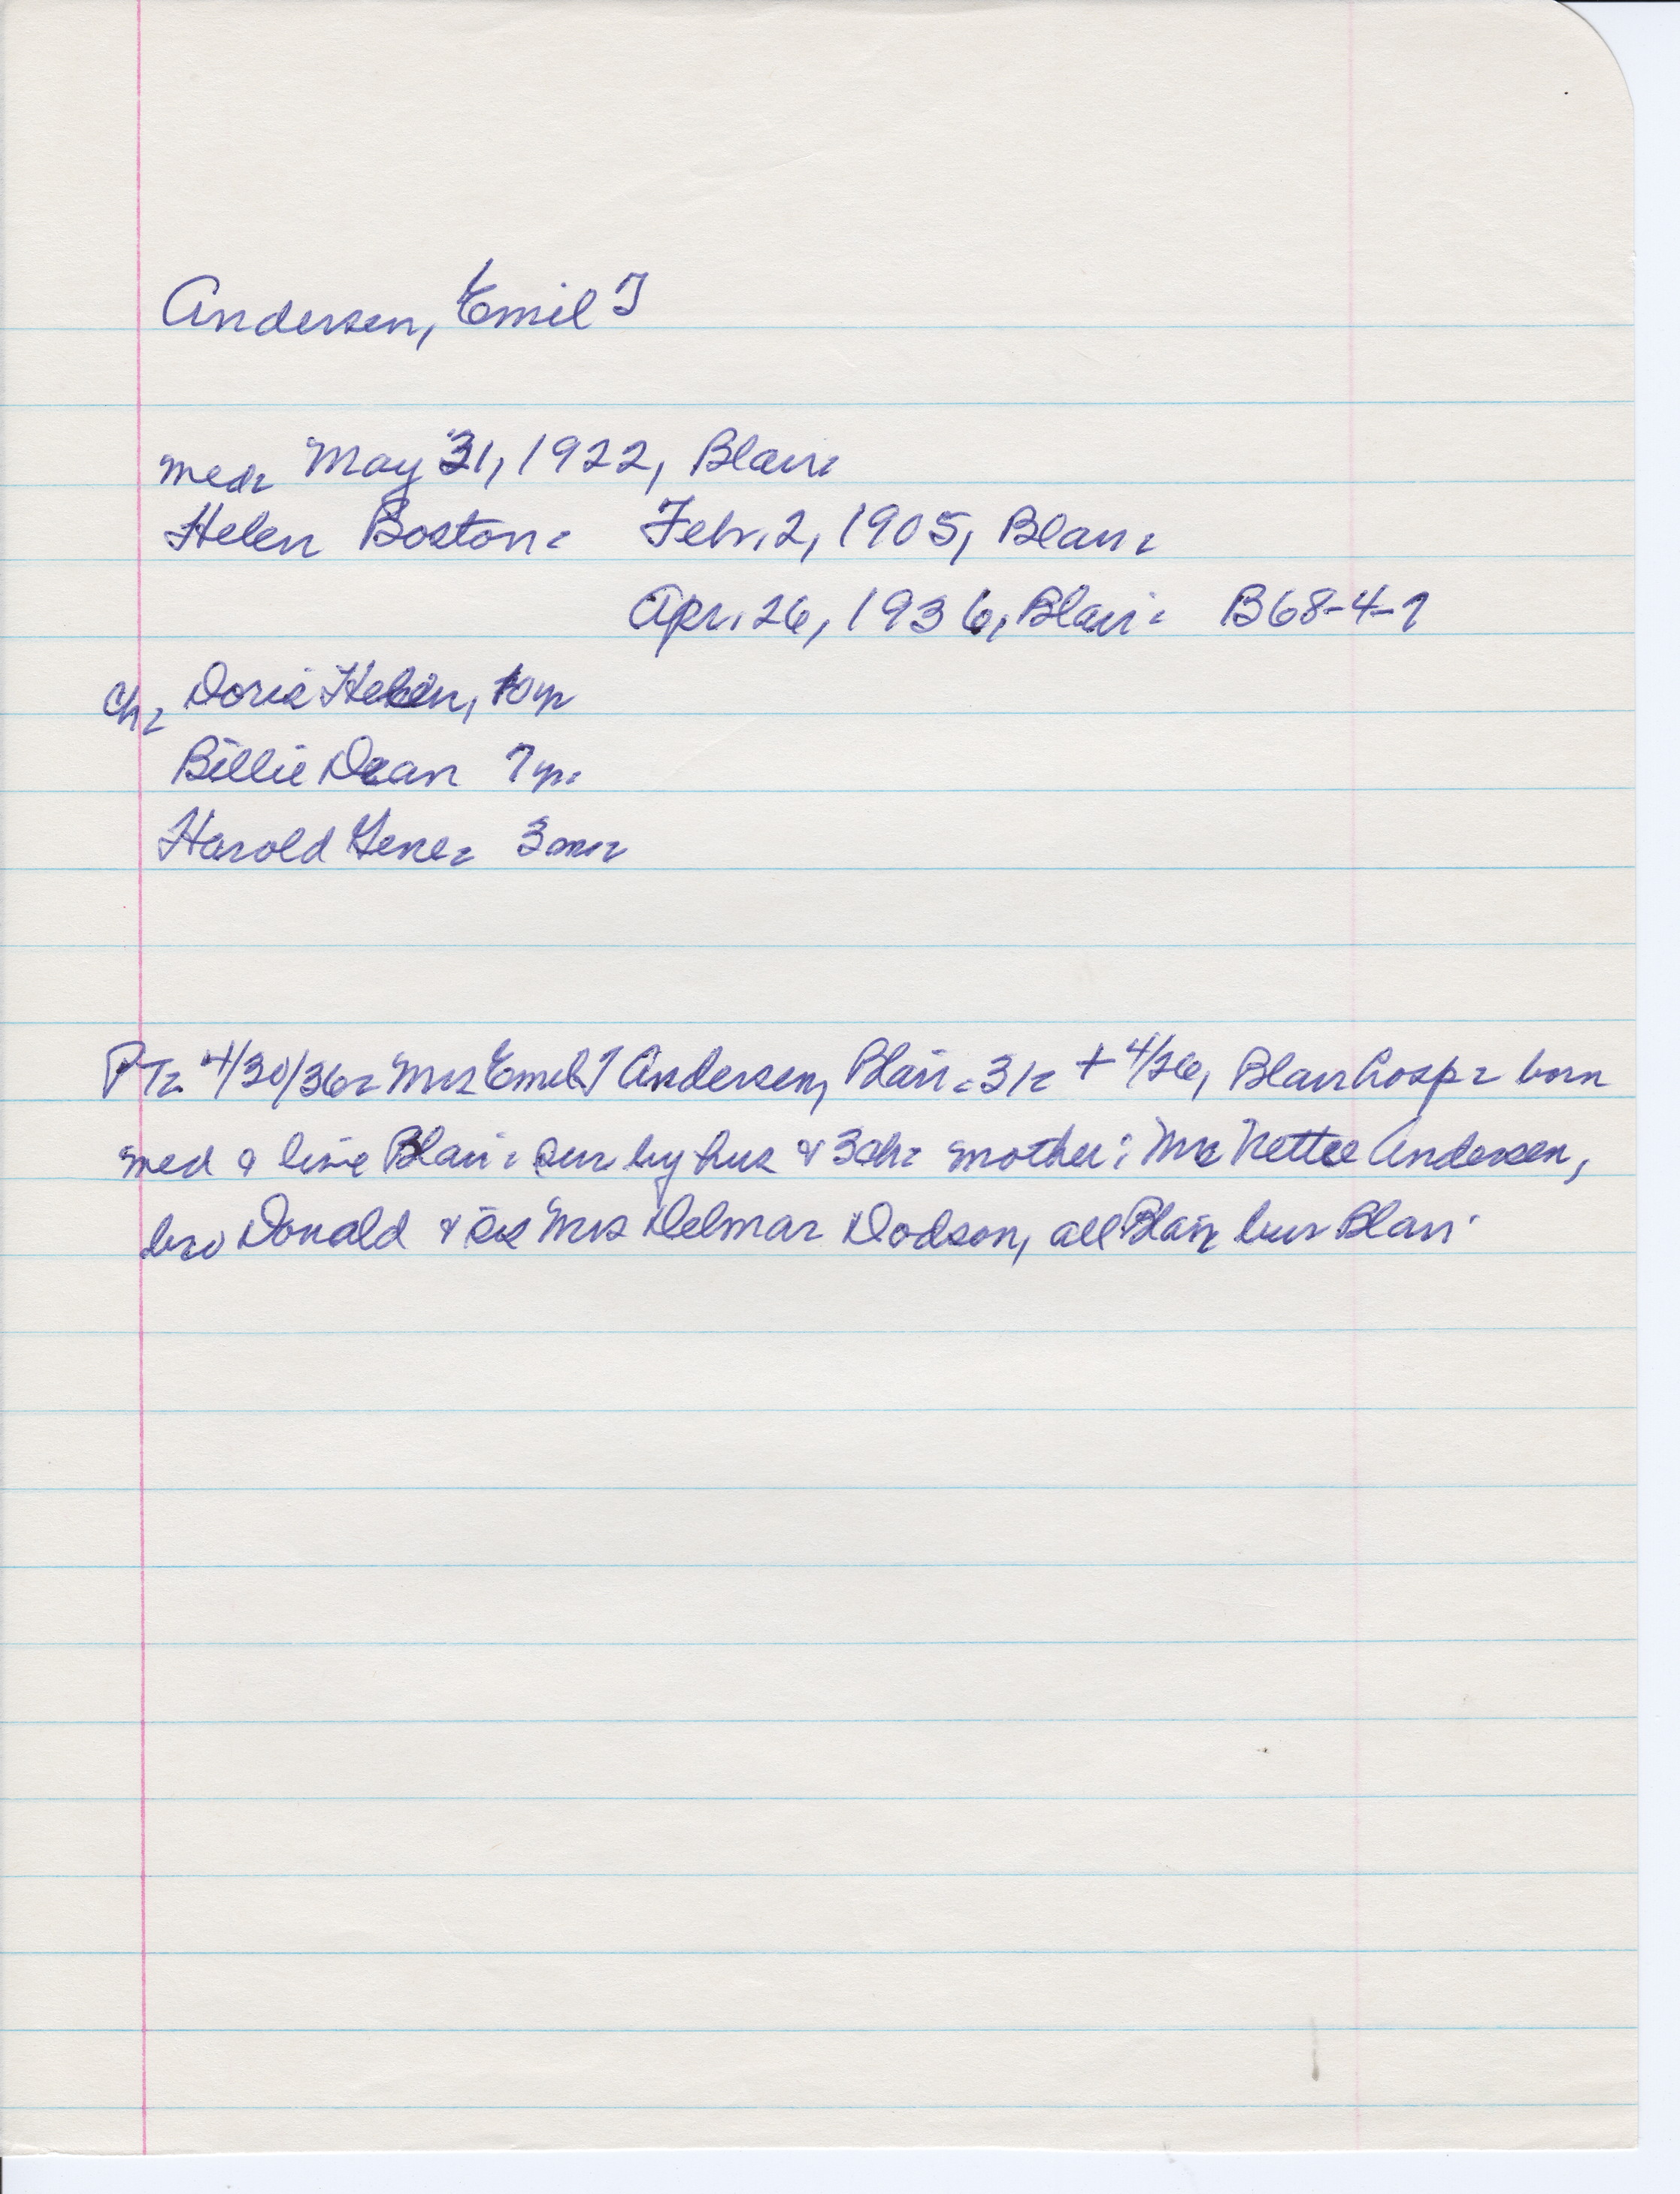 Andersen, Emil T
med. May 31, 1922, Blair.
Helen Boston. Febr. 2, 1905, Blair.
Apr. 26, 1936, Blair. B68-4-1
Ch. Doris Helen, 10 yr
Billie Dean 7 yr.
Harold Gene. 3 mo.
PT. 4/30/36. Mrs Emil T Andersen, Blair. 31. + 4/26, Blair hosp. born
med & live Blair. sur by hus & 3 ch. mother: Mrs Nettie Andersen,
bro Donald & sis Mrs Delmar Dodson, all Blair bur Blair.